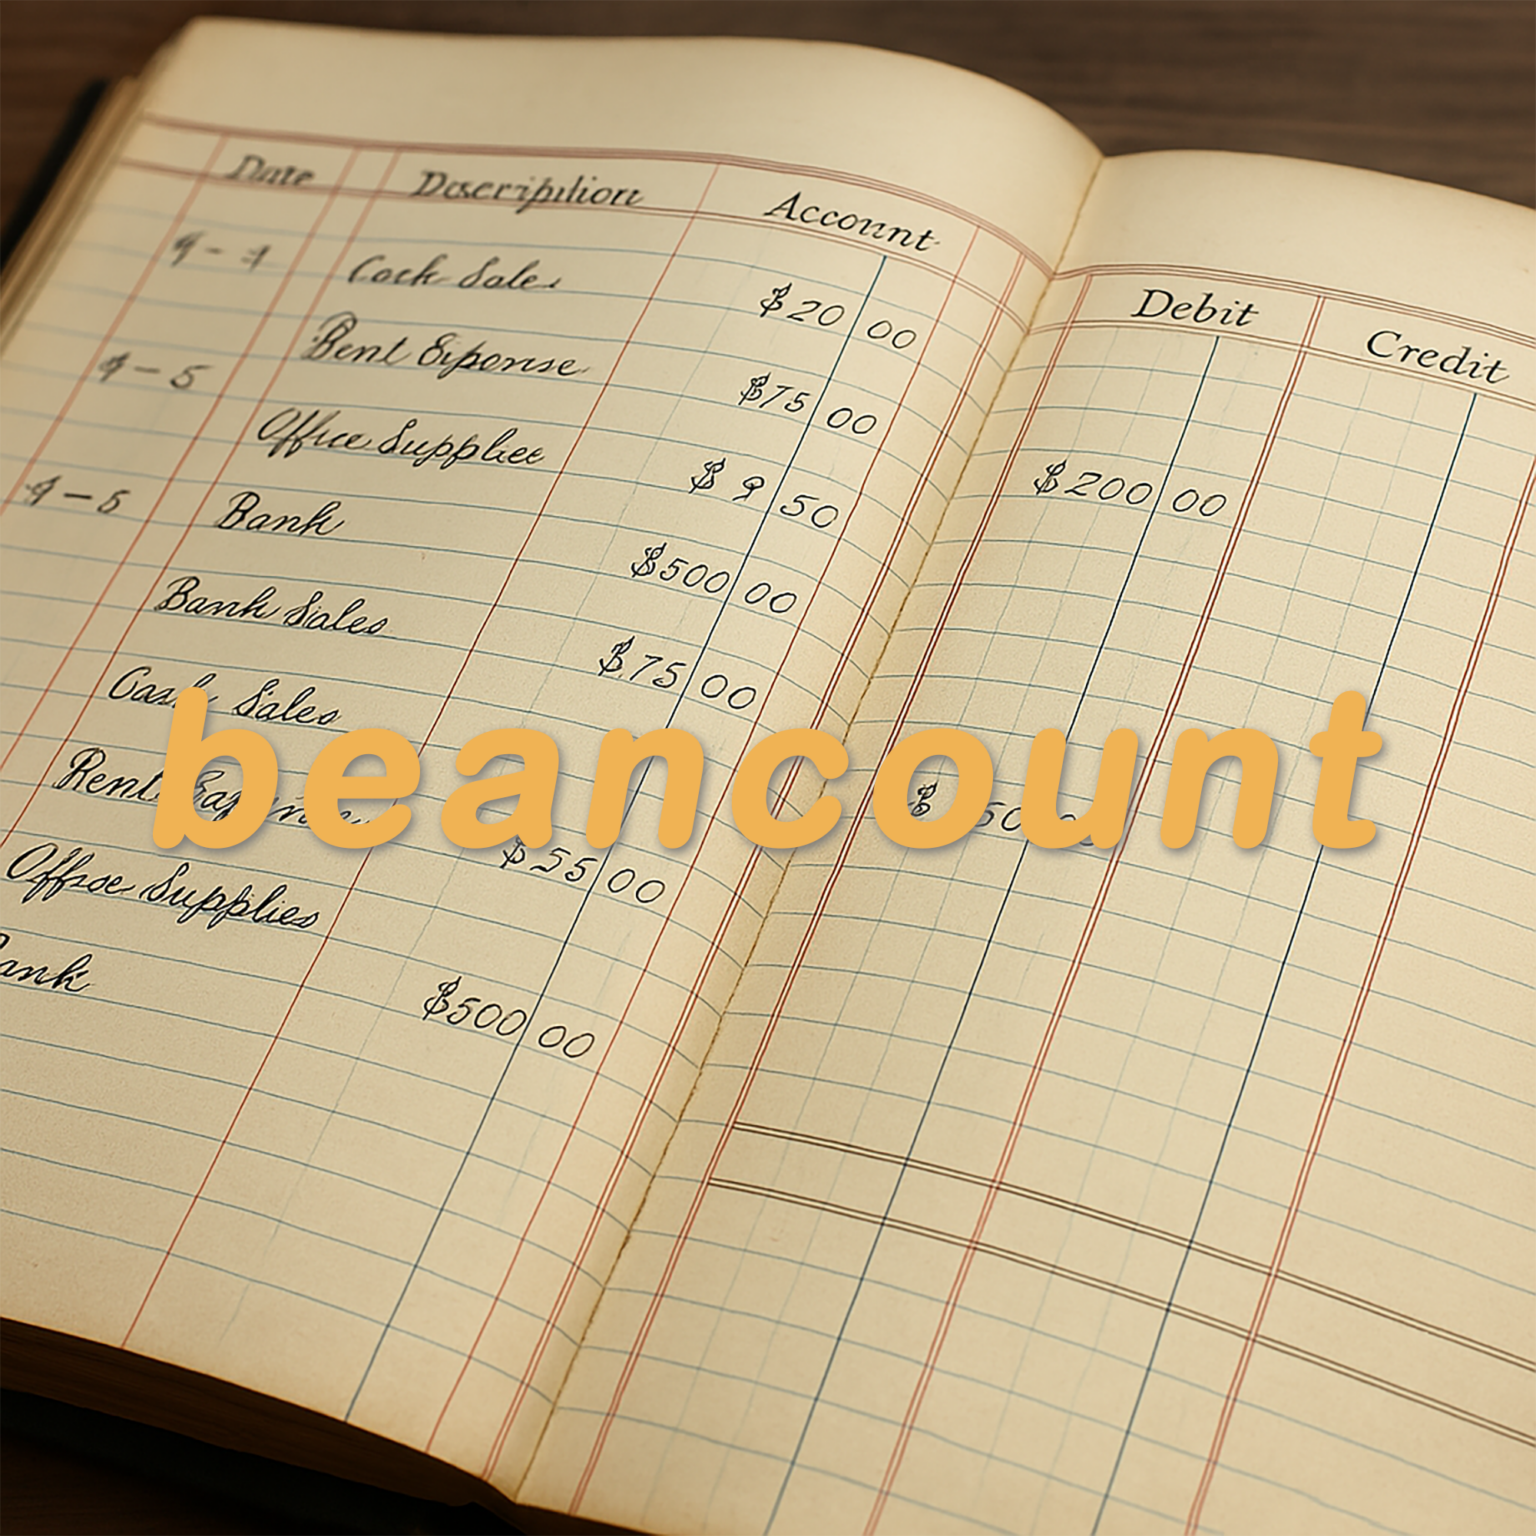 Date Description Account Debit Credit
Cash Sales $20 00
4-5 Rent Expense $75 00
Office Supplies $9 50 $200 00
4-5 Bank $500 00
Bank Sales $75 00
Cash Sales
beancount
Rent
$55 00
Office Supplies
$500 00